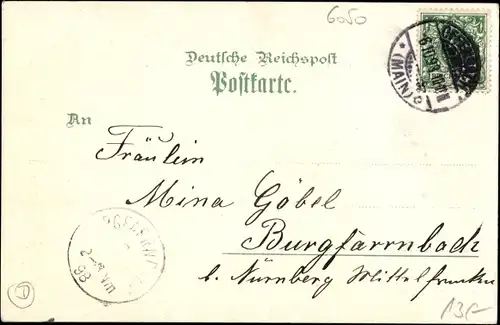 6050
Deutsche Reichspost
Postkarte.
An
Fräulein
Mina Göbel
Burgfarrnbach
b. Nürnberg Mittelfranken
(MAIN)
98
13,-